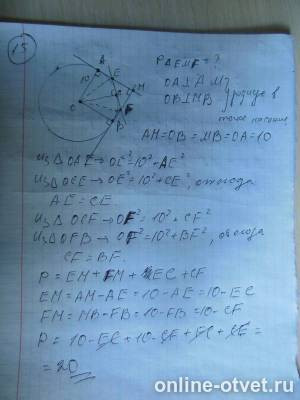 15
P AEMF = ?
OA⊥AM
OB⊥MB
радиус в точке касания
AM=OB=MB=OA=10
Из △OAE → OE²=10²+AE²
Из △OCE → OE²=10²+CE², откуда
AE=CE.
Из △OCF → OF²=10²+CF²
Из △OFB → OF²=10²+BF², откуда
CF=BF.
P=EM+FM+EC+CF
EM=AM-AE=10-AE=10-EC
FM=MB-FB=10-FB=10-CF
P=10-EC+10-CF+FC+CE=
=20
online-otvet.ru